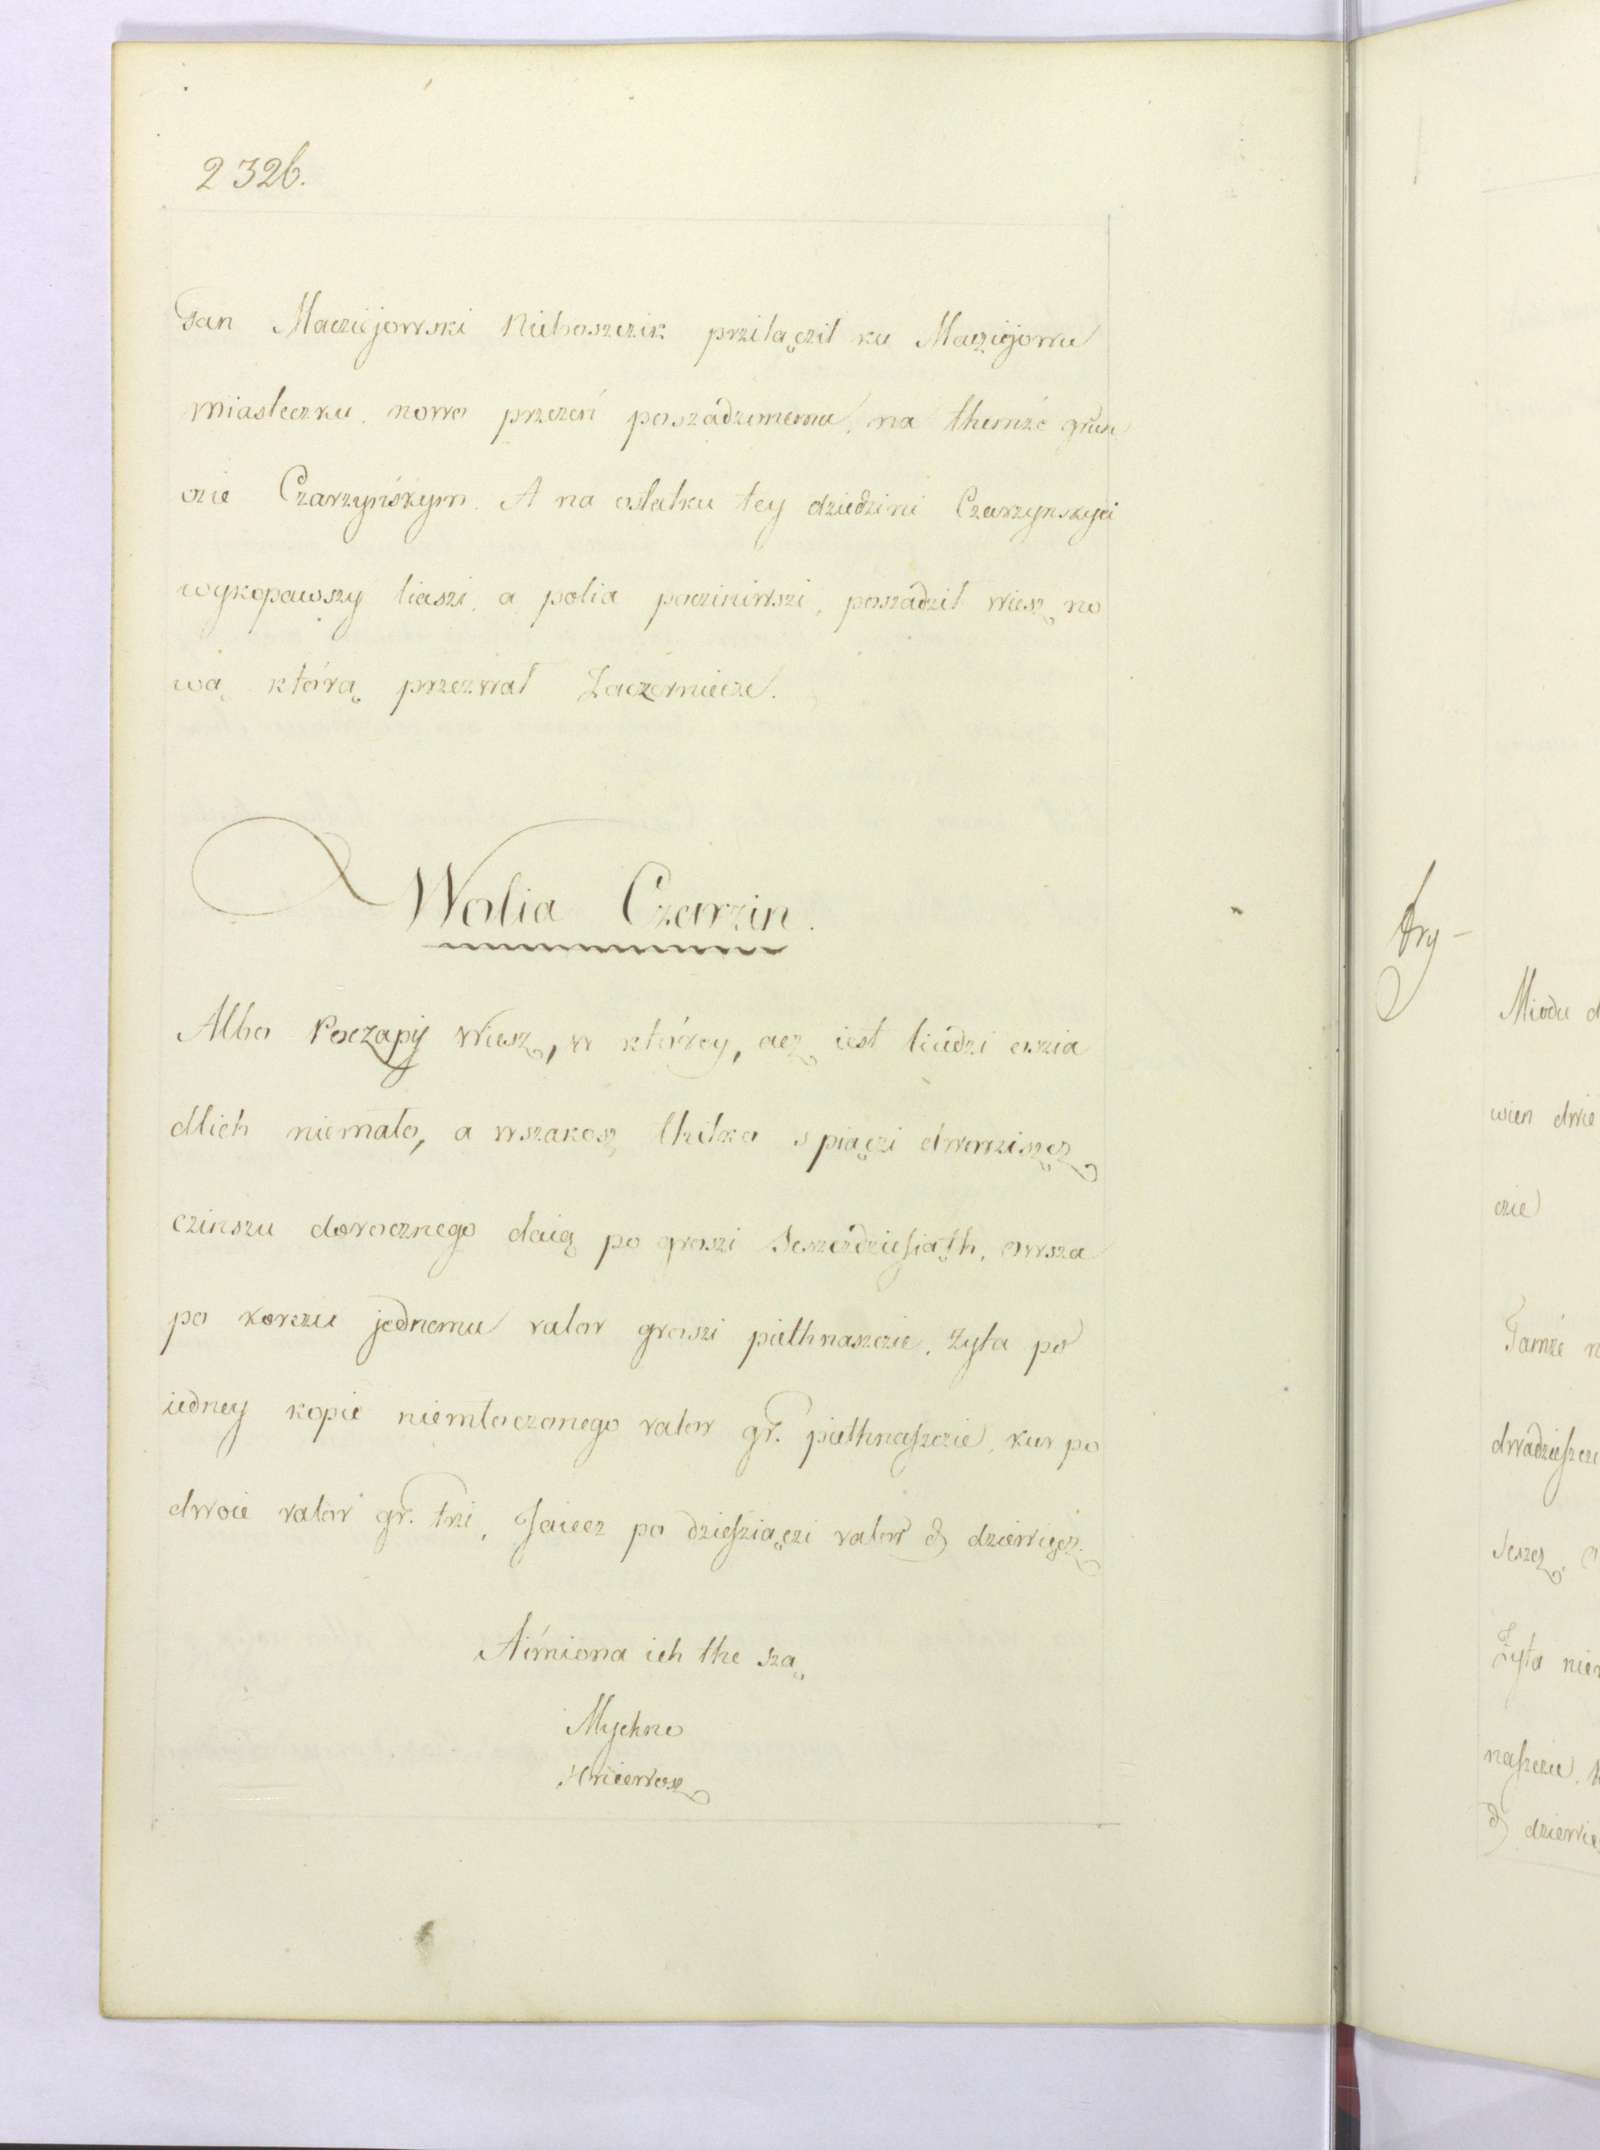 2326.
Jan Macziejowski Nieboszczik prziłączil ku Macziejowu
miasteczku nowo przezeń poszadzonemu, na themże grun
czie Czarzyńskym. A na ostatku tey dziedzini Czarzynskyei
wykopawszy liaszi, a polia pocziniwszi, poszadzil wiesz no
wą którą przezwał Zaczerniecze.
Wolia Czarzin.
Albo Poczapy Wiesz, w którey, acz iest liudzi oszia
dlich niemało, a wszakosz thilko s piączi dworziszcz
czinszu dorocznego daią po groszi Seszczdziesiąth, owsza
po korczu jednemu valor groszi piethnaszcie. Żyta po
iedney kopie niemłoczonego valor gr. piethnaszczie, kur po
dwoie valor gr. trzi, Jaiecz po dziesziączi valor ₰ dziewięcz.
Aimiona ich the szą
Mychno
Hriczewosz
try-
Miodu d
wien dwie
czie
Tamże n
dwadzieszczi
Seszcz,
Żyta niem
naszczie,
₰ dziewie